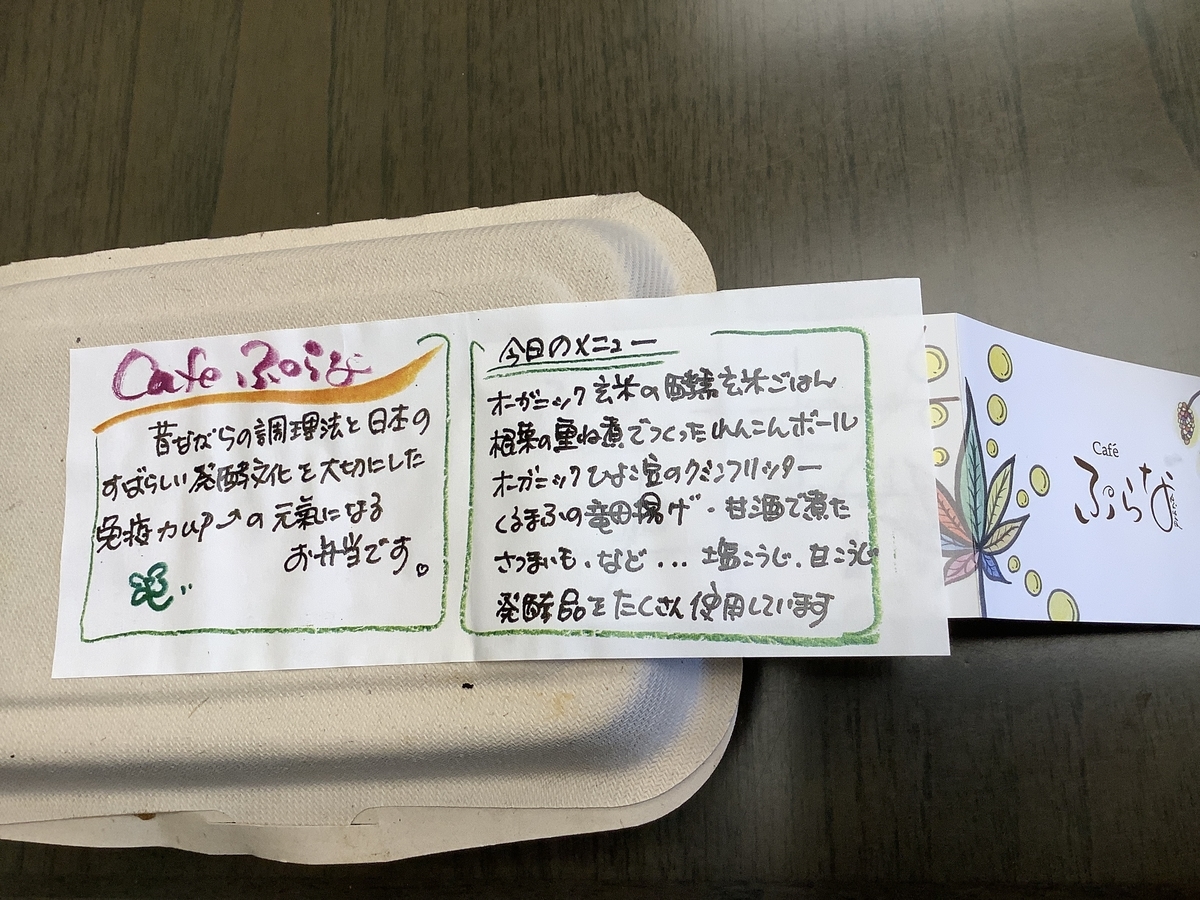 Cafe ぷらな
昔ながらの調理法と日本の
すばらしい発酵文化を大切にした
免疫力up↗の元氣になる
お弁当です。♡
今日のメニュー
オーガニック玄米の酵素玄米ごはん
根菜の重ね煮でつくったれんこんボール
オーガニックひよこ豆のクミンフリッター
くるまふの竜田揚げ・甘酒で煮た
さつまいも、など... 塩こうじ、甘こうじ
発酵品をたくさん使用しています
Café
ぷらな